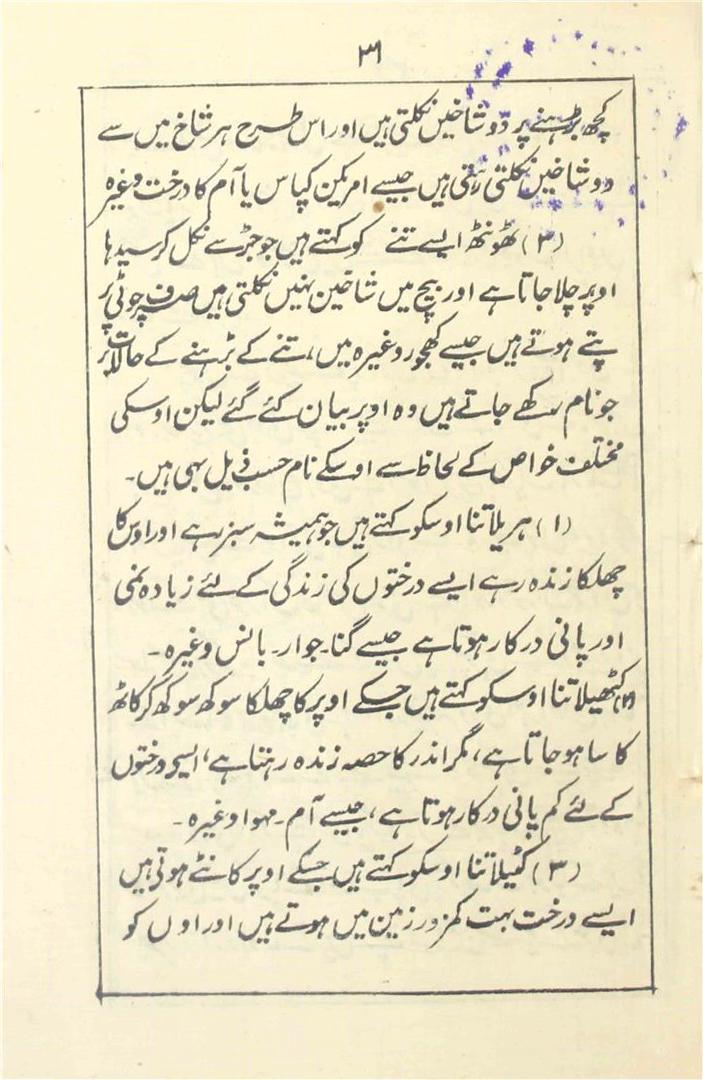 ۳۶
کچھ بڑہنے پر دو شاخیں نکلتی ہیں اور اس طرح ہر شاخ میں سے
دو شاخیں نکلتی رہتی ہیں جیسے امریکن کپاس یا آم کا درخت وغیرہ
(۳) ٹھونٹھ ایسے تنے کو کہتے ہیں جو جڑ سے نکل کر سیدہا
اوپر چلا جاتا ہے اور بیچ میں شاخین نہیں نکلتی ہیں صرف چوٹی پر
پتے ہوتے ہیں جیسے کھجور وغیرہ میں، تنے کے بڑہنے کے حالات پر
جو نام رکھے جاتے ہیں وہ اوپر بیان کئے گئے لیکن اوسکی
مختلف خواص کے لحاظ سے اوسکے نام حسب ذیل بہی ہیں۔
(۱) ہریلا تنا اوسکو کہتے ہیں جو ہمیشہ سبز رہے اور اوس کا
چھلکا زندہ رہے ایسے درختوں کی زندگی کے لئے زیادہ نمی
اور پانی درکار ہوتا ہے جیسے گنا۔ جوار۔ بانس وغیرہ۔
(۲) کٹھیلا تنا اوسکو کہتے ہیں جسکے اوپر کا چھلکا سوکھ سوکھ کر کاٹھ
کا سا ہو جاتا ہے، مگر اندر کا حصہ زندہ رہتا ہے، ایسی درختوں
کے لئے کم پانی درکار ہوتا ہے، جیسے آم۔ مہوا وغیرہ۔
(۳) کٹیلا تنا اوسکو کہتے ہیں جسکے اوپر کانٹے ہوتی ہیں
ایسے درخت بہت کمزور زمین میں ہوتے ہیں اور اوں کو